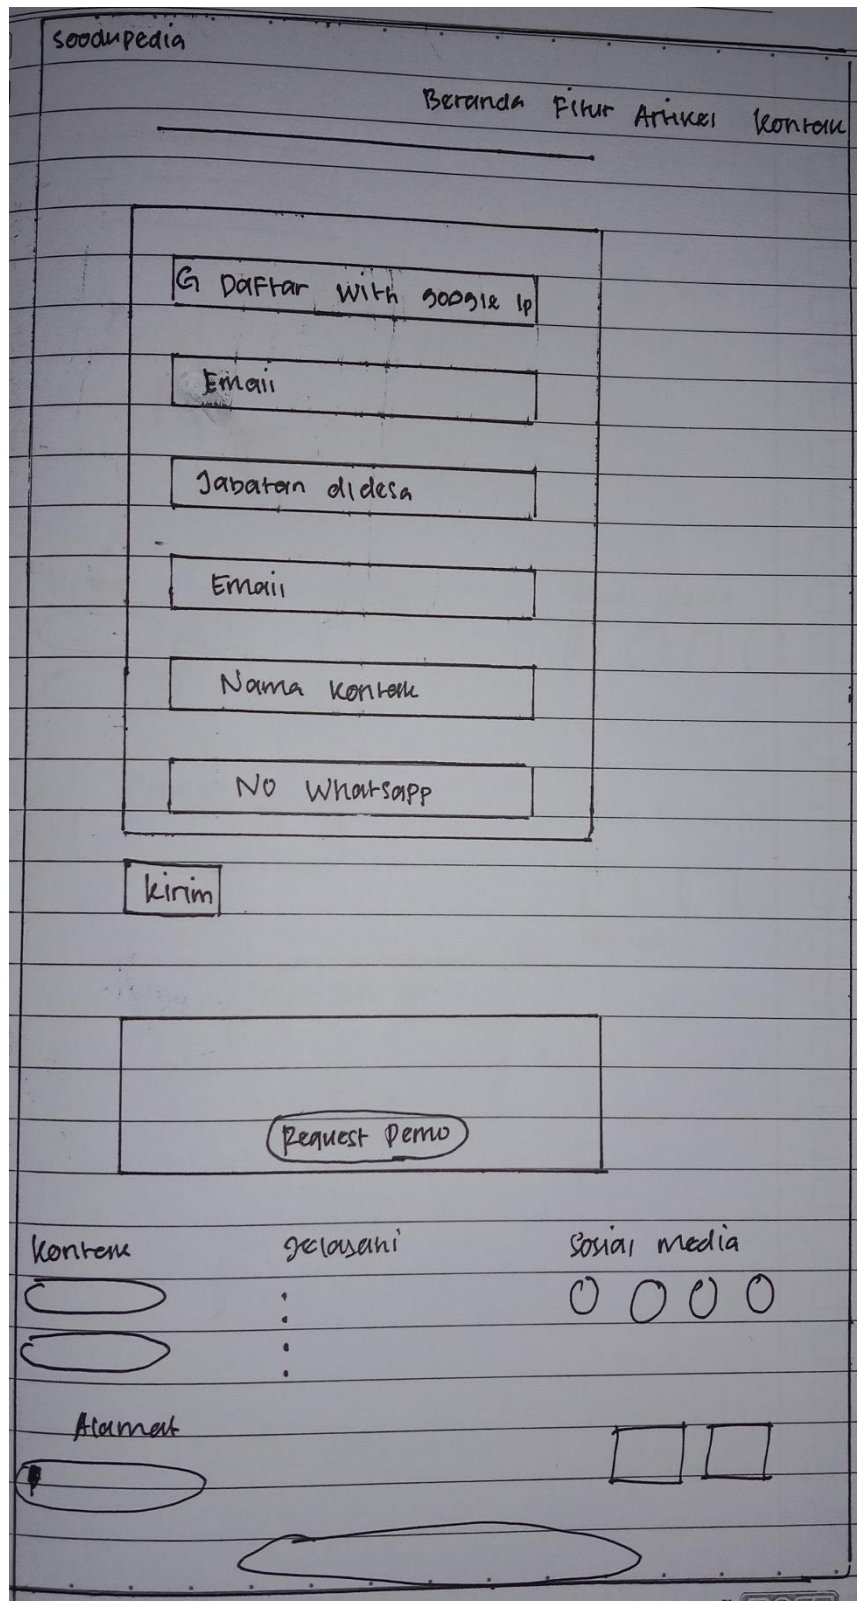 soodupedia
Beranda Fitur Artikel Kontak
G Daftar with google
Email
Jabatan didesa
Email
Nama Kontak
No Whatsapp
kirim
Request Demo
Kontak Jelajahi Sosial media
Alamat